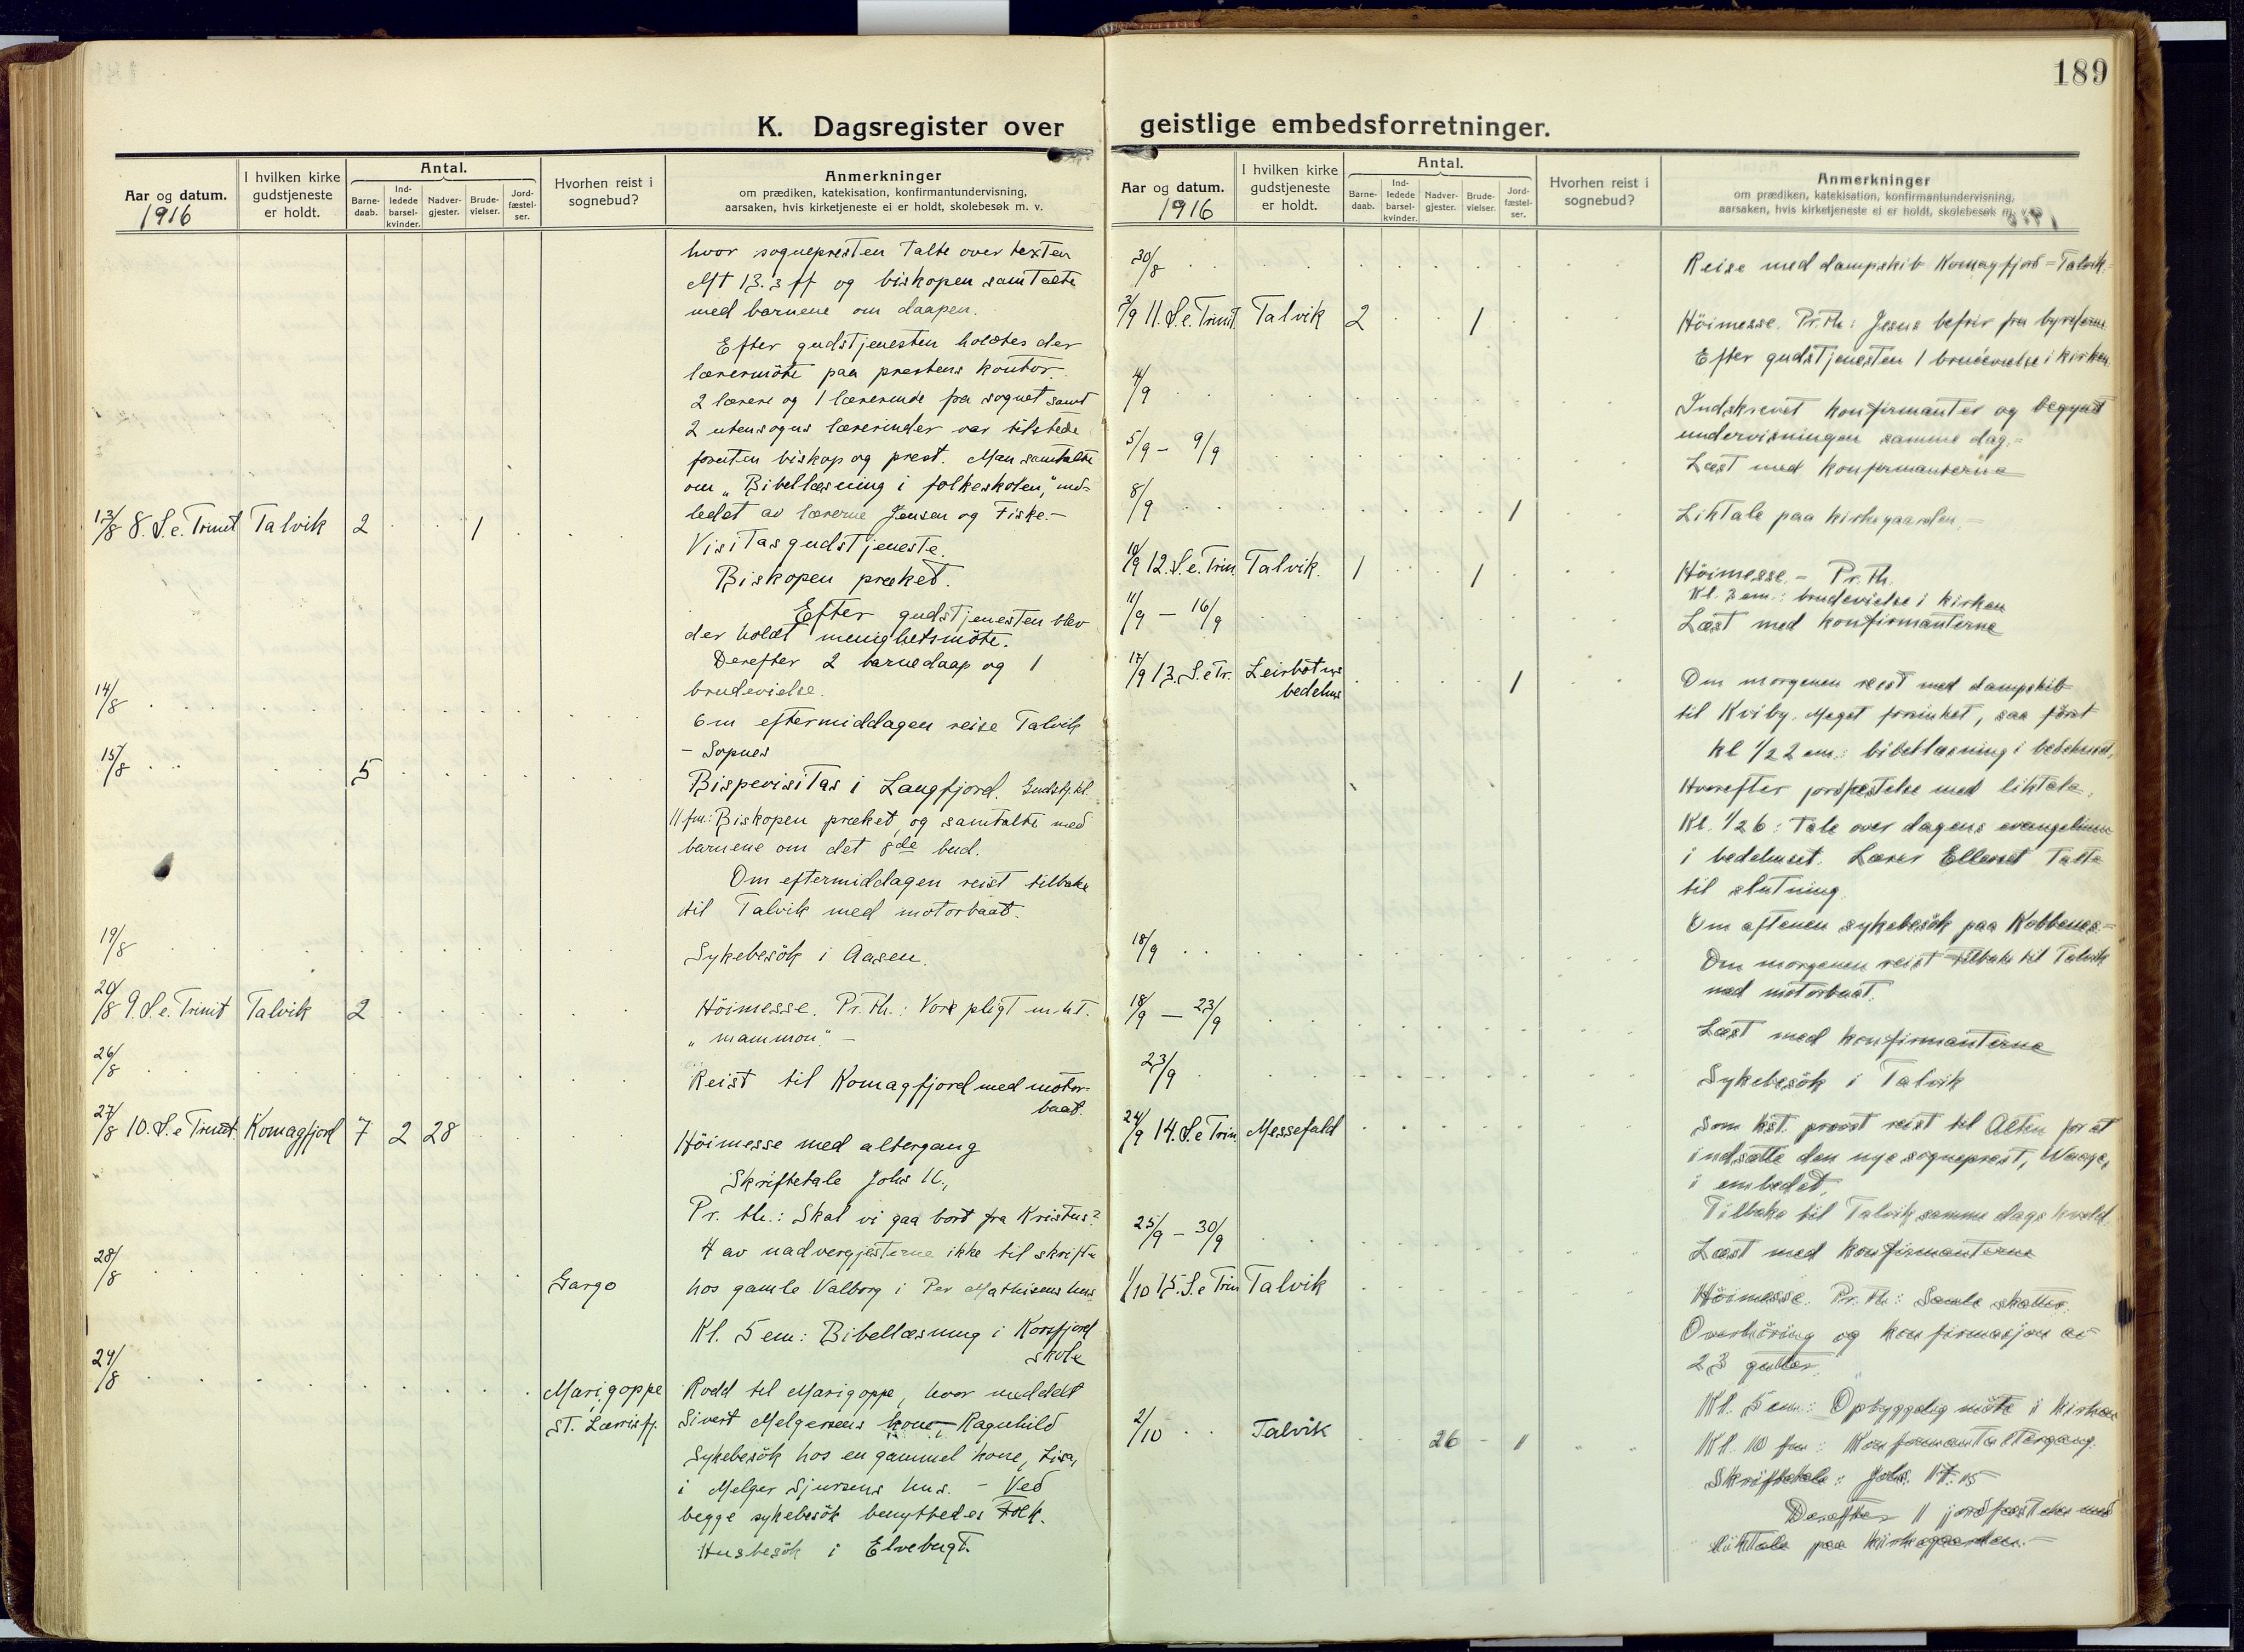 189
K. Dagsregister over geistlige embedsforretninger.
Aar og datum.
1916
I hvilken kirke gudstjeneste er holdt.
Antal.
Barne-daab.
Ind-ledede barsel-kvinder.
Nadver-gjester.
Brude-vielser.
Jord-fæstel-ser.
Hvorhen reist i sognebud?
Anmerkninger
om prædiken, katekisation, konfirmantundervisning,
aarsaken, hvis kirketjeneste ei er holdt, skolebesøk m. v.
hvor sognepresten talte over texten
Mt 13.3 ff og biskopen samtalte
med barnene om daapen.
Efter gudstjenesten holdtes der
lærermöte paa prestens kontor.
2 lærere og 1 lærerinde fra sognet samt
2 utensogns lærerinder var tilstede
foruten biskop og prest. Man samtalte
om "Bibellæsning i folkeskolen," ind-
ledet av lærerne Jensen og Fiske.-
13/8 8. S. e. Trinit Talvik 2 1 Visitasgudstjeneste.
Biskopen præket.
Efter gudstjenesten blev
der holdt menighetsmöte.
Derefter 2 barnedaap og 1
brudevielse.
14/8 Om eftermiddagen reise Talvik
- Sopnes
15/8 5 Bispevisitas i Langfjord. Gudstj. kl.
11 fm: Biskopen præket, og samtalte med
barnene om det 8de bud.
Om eftermiddagen reist tilbake
til Talvik med motorbaat.
19/8 Sykebesök i Aasen.
20/8 9. S. e. Trinit Talvik 2 Höimesse. Pr. th.: Vore pligt m.h.t.
"mammon." -
26/8 Reist til Komagfjord med motor-
baat.
27/8 10. S. e Trinit. Komagfjord 7 2 28 Höimesse med altergang
Skriftetale Johs
Pr. th.: Skal vi gaa bort fra Kristus?
4 av nadvergjesterne ikke til skrifte
28/8 Gargo hos gamle Valborg i Per Mathisens hus
Kl. 5 em: Bibellæsning i Korsfjord
skole
29/8 Marigoppe Rodd til Marigoppe, hvor meddelt
St. Lærrisfj. Sivert Melgersens kone, Ragnhild
Sykebesök hos en gammel kone, Lisa,
i Melger Sjursens hus. - Ved
begge sykebesök benyttedes tolk.
Husbesök i Elvebugt.
Aar og datum.
1916
I hvilken kirke gudstjeneste er holdt.
Antal.
Barne-daab.
Ind-ledede barsel-kvinder.
Nadver-gjester.
Brude-vielser.
Jord-fæstel-ser.
Hvorhen reist i sognebud?
Anmerkninger
om prædiken, katekisation, konfirmantundervisning,
aarsaken, hvis kirketjeneste ei er holdt, skolebesøk m. v.
30/8 Reise med dampskib Komagfjord = Talvik.
3/9 11. S. e. Trinit. Talvik 2 1 Höimesse. Pr. th: Jesus befrir fra
Efter gudstjenesten 1 brudevielse i kirken.
4/9 Indskrevet konfirmanter og begynt
undervisningen samme dag.=
5/9 - 9/9 Læst med konfirmanterne
8/9 1 Liktale paa kirkegaarden. -
10/9 12. S. e. Trin. Talvik. 1 1 Höimesse. - Pr. th.
Kl. 3 em.: brudevielse i kirken
11/9 - 16/9 Læst med konfirmanterne
17/9 13. S. e Tr. Leirbotns bedehus 1 Om morgenen reist med dampskib
til Kviby. Meget forsinket, saa först
kl 1/2 2 em.: bibellæsning i bedehuset.
Hvorefter jordfæstelse med liktale.
Kl. 1/2 6: Tale over dagens evangelium
i bedehuset. Lærer Ellerset talte
til slutning.
Om aftenen sykebesök paa Kobbenes=
18/9 Om morgenen reist tilbake til Talvik
med motorbaat.
18/9 - 23/9 Læst med konfirmanterne
23/9 Sykebesök i Talvik
24/9 14. S e Trin. Messefald Som kst. provst reist til Alten for at
indsætte den nye sogneprest, Waage,
i embedet.
Tilbake til Talvik samme dags kveld.
25/9 - 30/9 Læst med konfirmanterne
1/10 15. S. e Trin Talvik Höimesse. Pr. th: Samle skatter.
Overhöring og konfirmasjon av
23 gutter.
Kl. 5 em: Opbyggelig möte i kirken
2/10 Talvik 26 1 Kl. 10 fm: Konfirmantaltergang.
Skriftetale: Johs. 15
Derefter 1 jordfæstelse med
liktale paa kirkegaarden. -